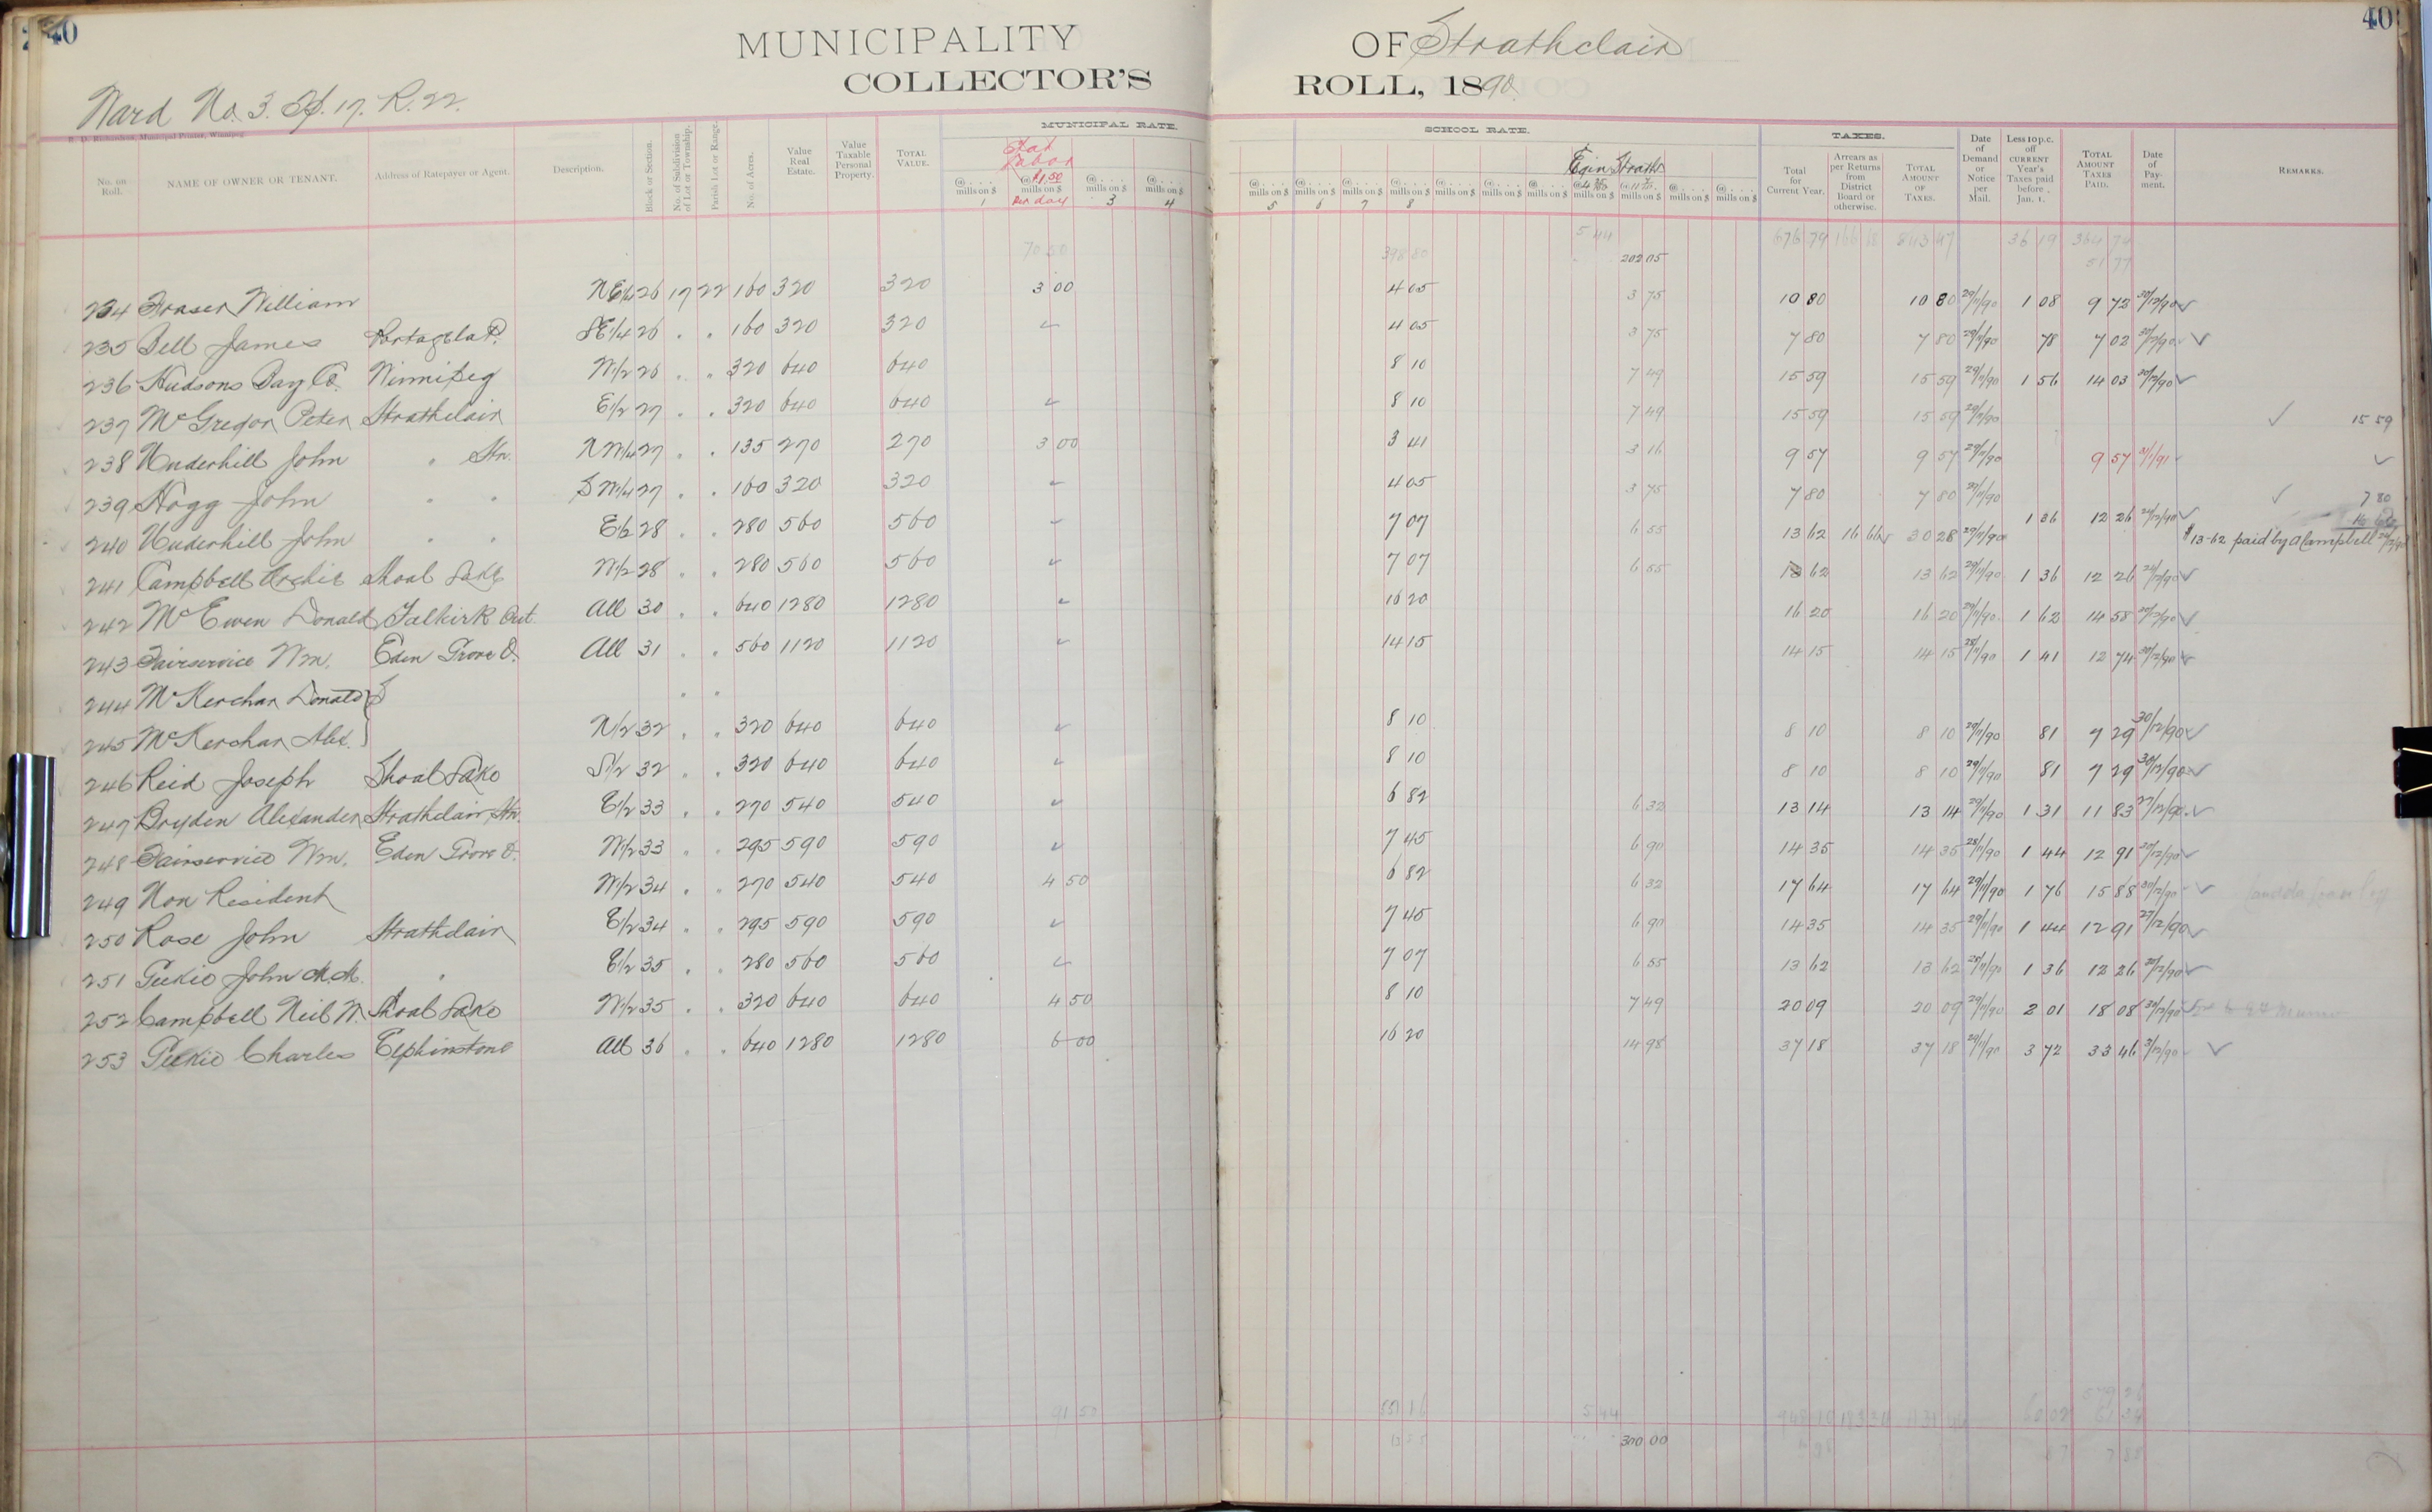 40
40
MUNICIPALITY OF Strathclair
COLLECTOR'S ROLL, 1890.
Ward No. 3. Tp. 17. R. 22.
R. D. Richardson, Municipal Printer, Winnipeg.
MUNICIPAL RATE. SCHOOL RATE. TAXES.
No. on Roll. NAME OF OWNER OR TENANT. Address of Ratepayer or Agent. Description. Block or Section. No. of Subdivision of Lot or Township. Parish Lot or Range. No. of Acres. Value Real Estate. Value Taxable Personal Property. TOTAL VALUE. @.... mills on $ 1 Stat Labor @ $1.50 mills on $ per day @.... mills on $ 3 @.... mills on $ 4 @.... mills on $ 5 @.... mills on $ 6 @.... mills on $ 7 @.... mills on $ 8 @.... mills on $ @.... mills on $ @.... mills on $ mills on $ Strath mills on $ @.... mills on $ @.... mills on $ Total for Current Year. Arrears as per Returns from District Board or otherwise. TOTAL AMOUNT OF TAXES. Date of Demand or Notice per Mail. Less 10 p.c. off CURRENT Year's Taxes paid before Jan. 1. TOTAL AMOUNT TAXES PAID. Date of Payment. REMARKS.
70 50 398 80 5 44 202 05 676 79 166 68 843 47 36 19 364 74
51 77
234 Fraser William NE1/4 26 17 22 160 320 320 3 00 4 05 3 75 10 80 10 80 29/11/90 1 08 9 72 30/12/90 ✓
235 Bell James Portage la P. SE1/4 26 " " 160 320 320 ✓ 4 05 3 75 7 80 7 80 29/11/90 78 7 02 30/12/90 ✓
236 Hudsons Bay Co. Winnipeg W1/2 26 " " 320 640 640 8 10 7 49 15 59 15 59 29/11/90 1 56 14 03 20/12/90 ✓
237 McGregor Peter Strathclair E1/2 27 " " 320 640 640 ✓ 8 10 7 49 15 59 15 59 29/11/90 ✓ 15 59
238 Underhill John " Stn. NW1/4 27 " " 135 270 270 3 00 3 41 3 16 9 57 9 57 29/11/90 9 57 31/1/91 ✓
239 Hogg John " " SW1/4 27 " " 160 320 320 ✓ 4 05 3 75 7 80 7 80 29/11/90 ✓ 7 80
240 Underhill John " " E1/2 28 " " 280 560 560 ✓ 7 07 6 55 13 62 16 66 30 28 29/11/90 1 36 12 26 24/12/90 ✓ $13-62 paid by A Campbell
241 Campbell Archie Shoal Lake W1/2 28 " " 280 560 560 ✓ 7 07 6 55 13 62 13 62 29/11/90 1 36 12 26 24/12/90 ✓
242 McEwen Donald Falkirk Ont. All 30 " " 640 1280 1280 ✓ 16 20 16 20 16 20 29/11/90 1 62 14 58 20/12/90 ✓
243 Fairservice Wm. Eden Grove O. All 31 " " 560 1120 1120 ✓ 14 15 14 15 14 15 28/11/90 1 41 12 74 30/12/90 ✓
244 McKerchar Donald } " "
245 McKerchar Alex. } N1/2 32 " " 320 640 640 ✓ 8 10 8 10 8 10 29/11/90 81 7 29 30/12/90 ✓
246 Reid Joseph Shoal Lake S1/2 32 " " 320 640 640 ✓ 8 10 8 10 8 10 29/11/90 81 7 29 30/12/90 ✓
247 Bryden Alexander Strathclair Stn. E1/2 33 " " 270 540 540 ✓ 6 82 6 32 13 14 13 14 29/11/90 1 31 11 83 27/12/90 ✓
248 Fairservice Wm. Eden Grove O. W1/2 33 " " 295 590 590 ✓ 7 45 6 90 14 35 14 35 28/11/90 1 44 12 91 30/12/90 ✓
249 Non Resident W1/2 34 " " 270 540 540 4 50 6 82 6 32 17 64 17 64 29/11/90 1 76 15 88 30/12/90 ✓
250 Rose John Strathclair E1/2 34 " " 295 590 590 ✓ 7 45 6 90 14 35 14 35 29/11/90 1 44 12 91 27/12/90 ✓
251 Geekie John M.M. " E1/2 35 " " 280 560 560 ✓ 7 07 6 55 13 62 13 62 28/11/90 1 36 12 26 30/12/90 ✓
252 Campbell Neil W. Shoal Lake W1/2 35 " " 320 640 640 4 50 8 10 7 49 20 09 20 09 29/11/90 2 01 18 08 30/12/90
253 Geekie Charles Elphinstone All 36 " " 640 1280 1280 6 00 16 20 14 98 37 18 37 18 29/11/90 3 72 33 46 31/12/90 ✓
91 50 551 16 5 44
300 00